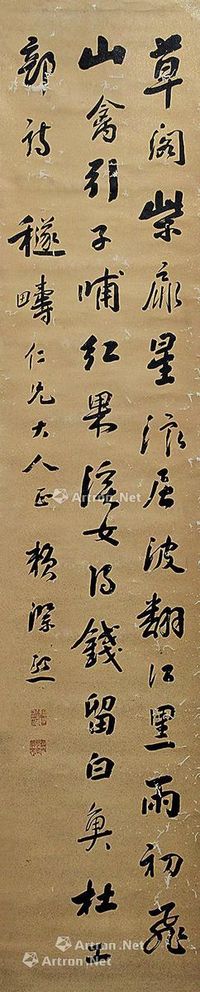 草閣柴扉星散居波翻江黑雨初飛
山禽引子哺紅果溪女得錢留白魚杜工
部詩 穟疇仁兄大人正 賴際熙
Artron.Net
Artron.Net
Artron.Net
Artron.Net
Artron.Net
Artron.Net